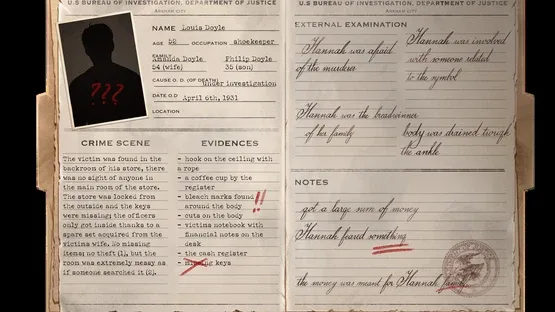 U.S BUREAU OF INVESTIGATION, DEPARTMENT OF JUSTICE
ARKHAM CITY
NAME Louis Doyle
AGE 52 OCCUPATION shoekeeper
FAMILY
Amanda Doyle Philip Doyle
54 (wife) 35 (son)
CAUSE O. D. (OF DEATH) Under investigation
DATE O.D April 6th, 1931
LOCATION
???
CRIME SCENE
The victim was found in the
backroom of his store, there
was no sight of anyone in
the main room of the store.
The store was locked from
the outside and the keys
were missing; the oficers
only got inside thanks to a
spare set acquired from the
victims wife. No missing
items; no theft (1), but the
room was extremely messy as
if someone searched it (2).
EVIDENCES
- hook on the ceiling with
a rope
- a coffee cup by the
register
- bleach marks found
around the body
!!
- cuts on the body
- victims notebook with
financial notes on the
desk
- the cash register
- missing keys
U.S BUREAU OF INVESTIGATION, DEPARTMENT OF JUSTICE
ARKHAM CITY
EXTERNAL EXAMINATION
Hannah was afraid
of the murderer
Hannah was involved
with someone related
to the symbol
Hannah was the breadwinner
of her family
body was drained trough
the ankle
NOTES
got a large sum of money
Hannah feared something
the money was meant for Hannah family